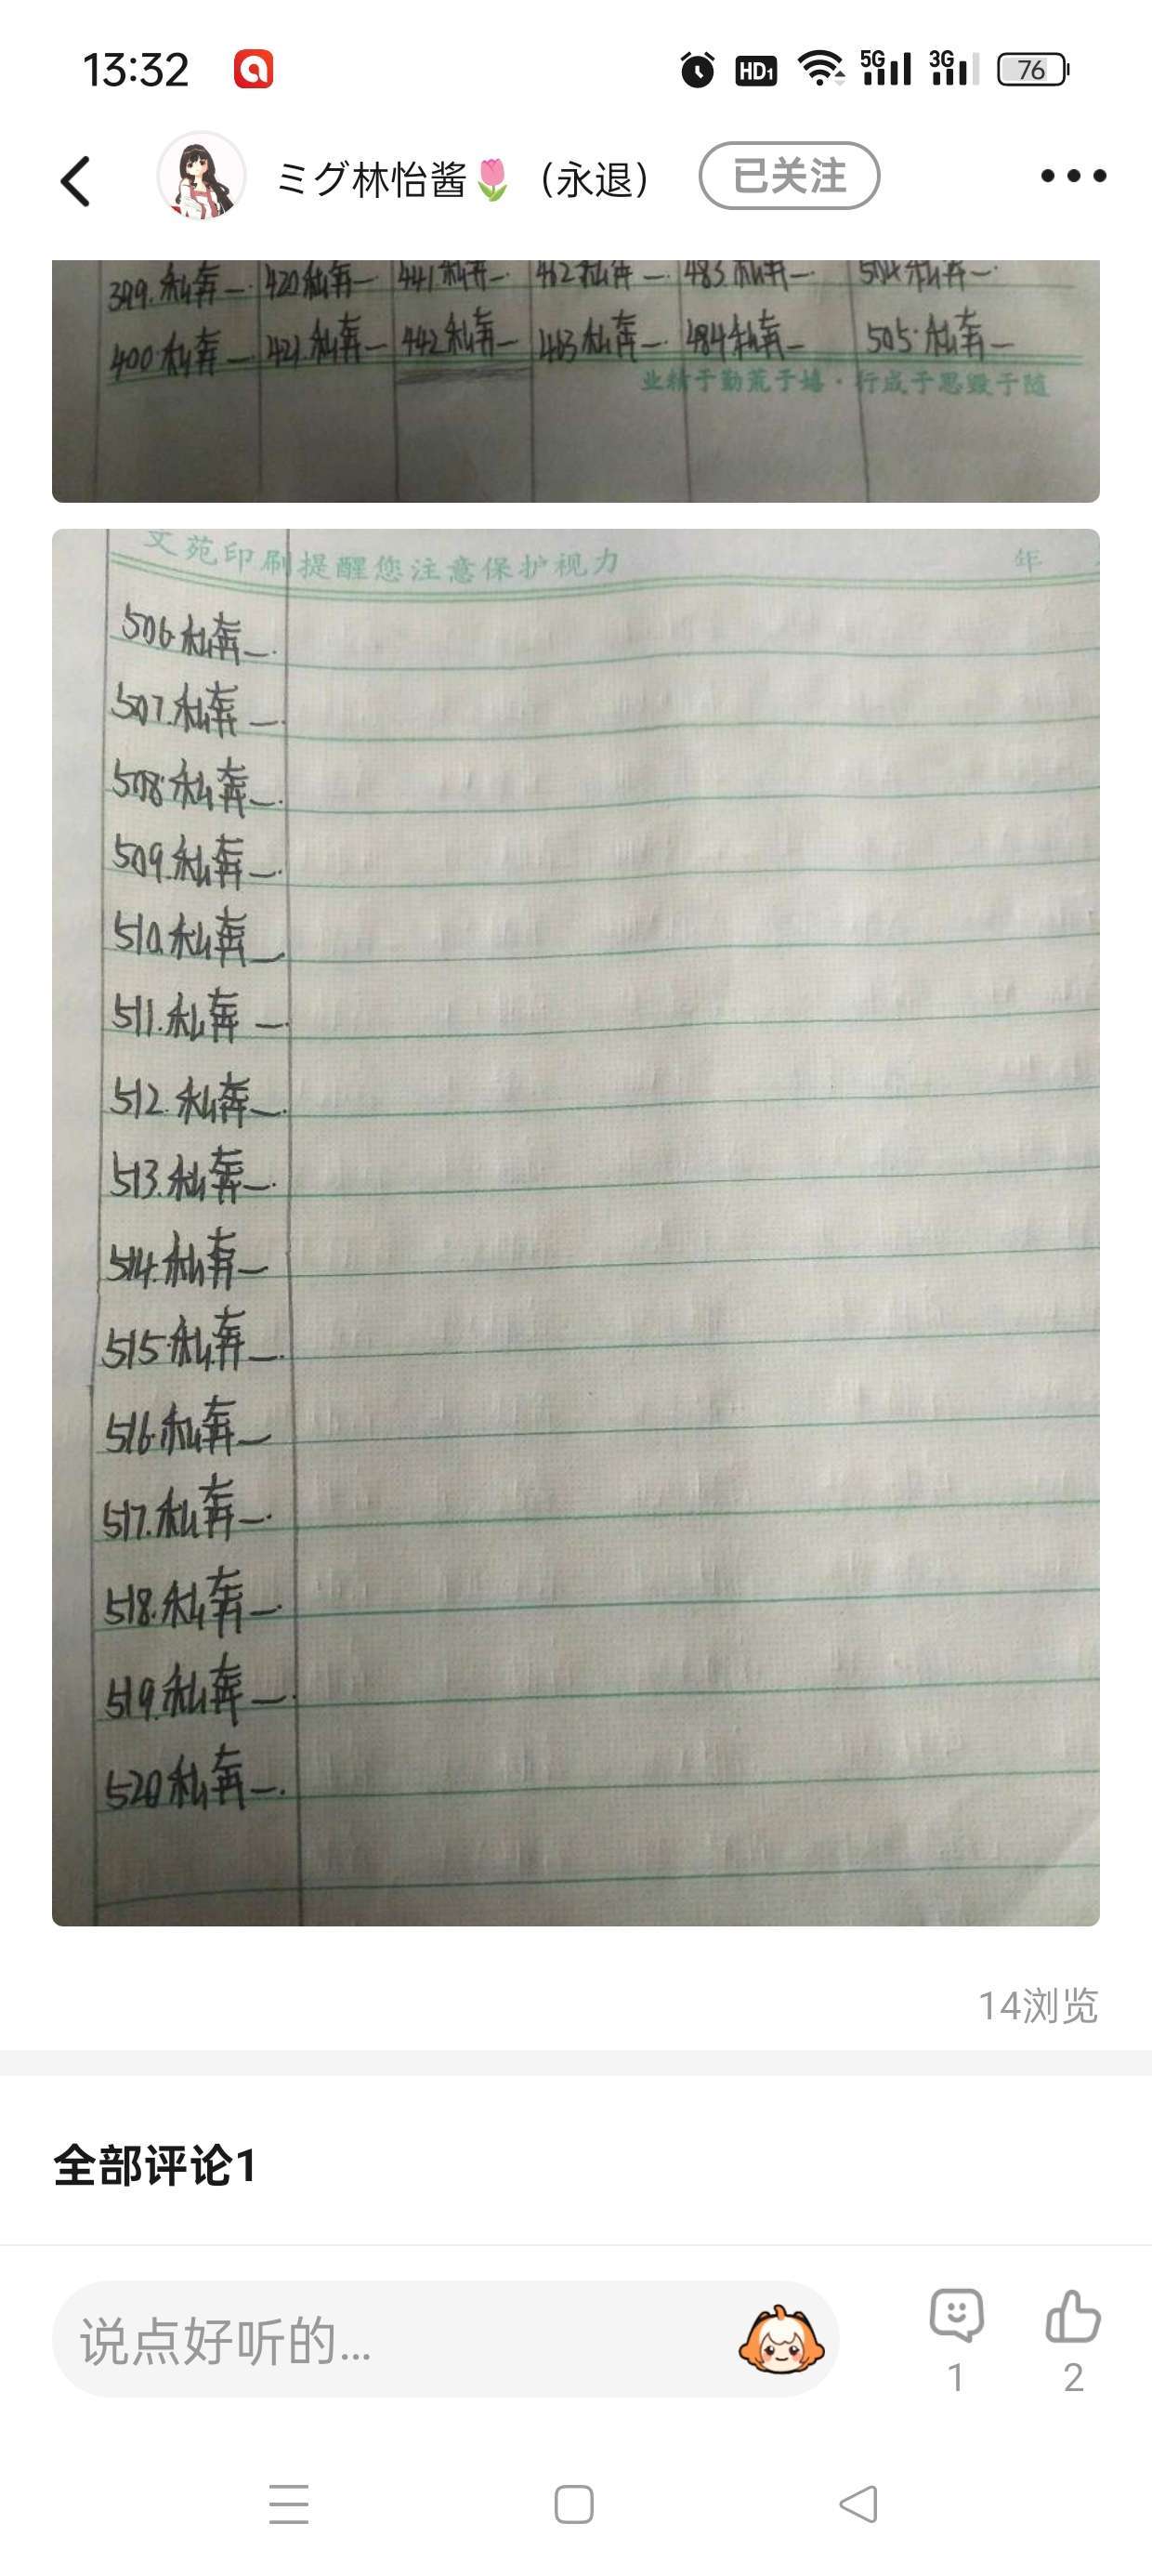 13:32 HD1 5G 3G 76
ミグ林怡酱🌷（永退） 已关注
399.私奔一. 420私奔一. 441私奔一. 462私奔一. 483.私奔一. 504私奔一.
400.私奔一 421.私奔一 442私奔一 463私奔一. 484私奔一 505.私奔一
业精于勤荒于嬉·行成于思毁于随
文苑印刷提醒您注意保护视力 年
506.私奔一.
507.私奔一.
508.私奔一.
509.私奔一.
510.私奔一
511.私奔一.
512.私奔一.
513.私奔一.
514.私奔一
515.私奔一.
516.私奔一
517.私奔一.
518.私奔一.
519.私奔一.
520私奔一.
14浏览
全部评论1
说点好听的...
1 2